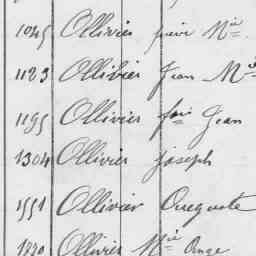 1045 Ollivier pierre Mie
1123 Ollivier Jean Mie
1195 Ollivier fois Jean
1304 Ollivier Joseph
1551 Ollivier
Ollivier Mie Ange